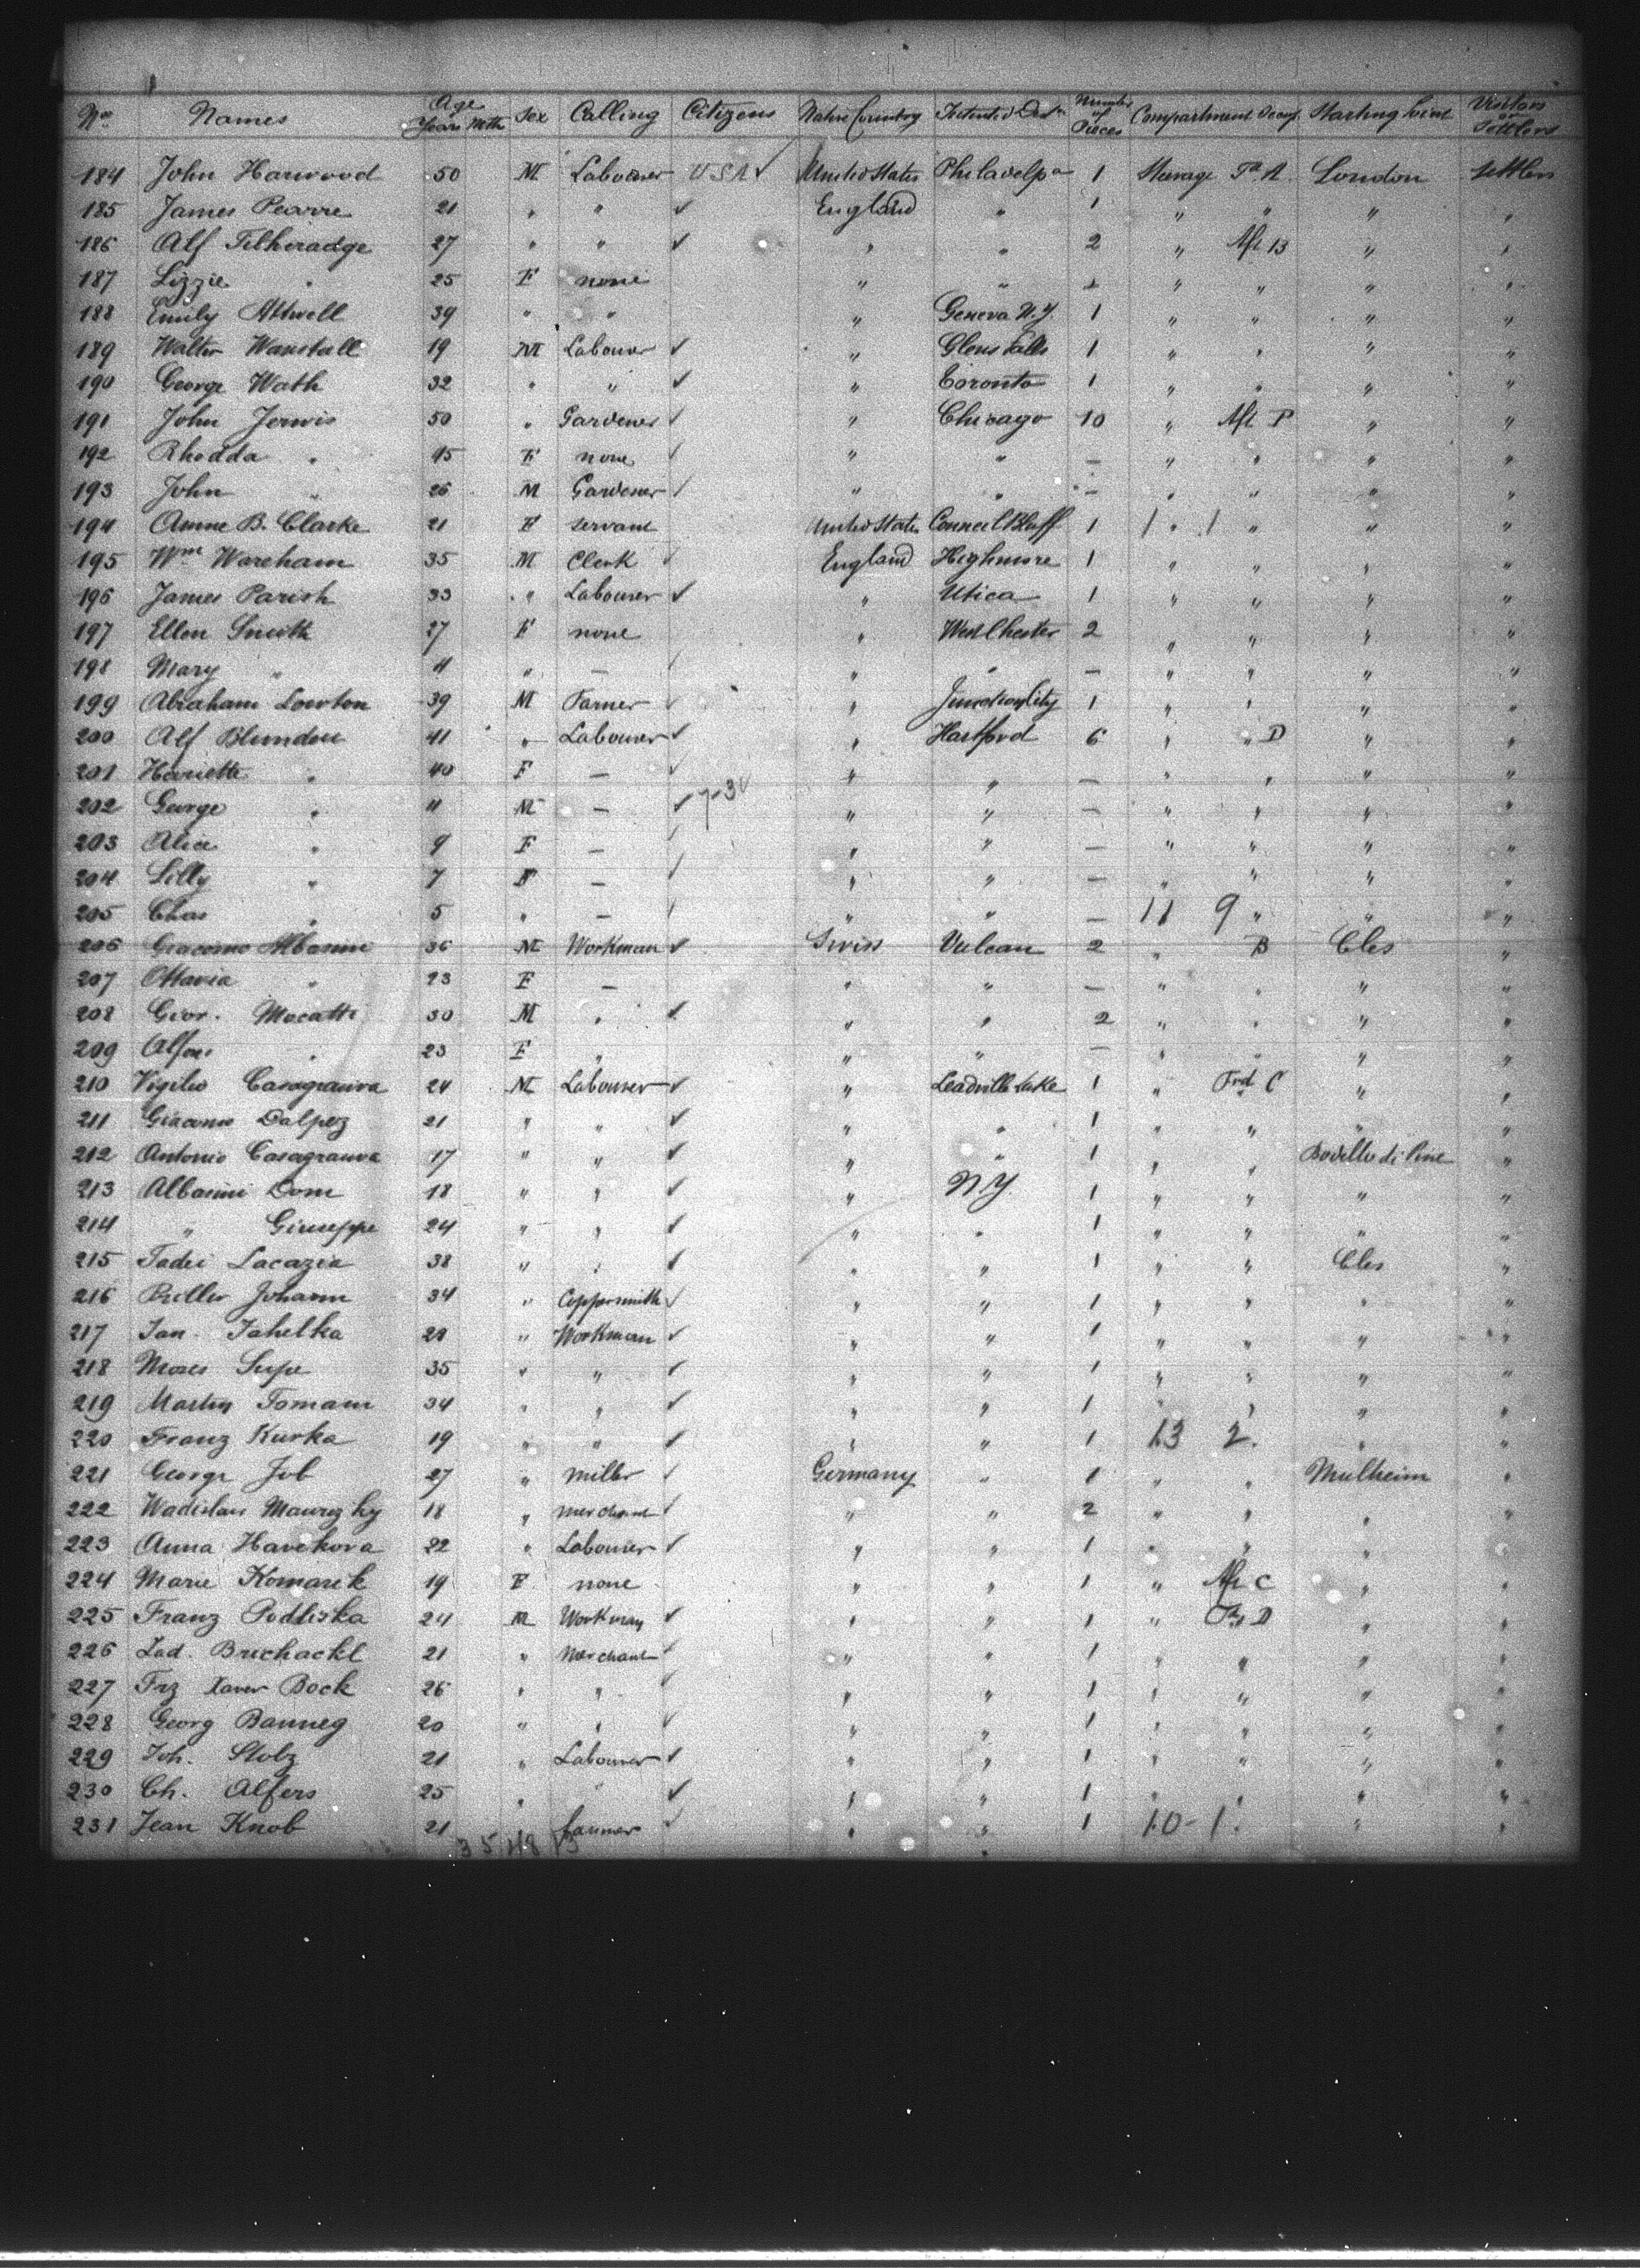 Nos Names Age Years Mths Sex Calling Citizens Native Country Intended Destn Number of Pieces Compartment Occup. Starting Point Visitors or Settlers
184 John Harwood 50 M Labourer USA ✓ United States Philadelpa 1 Steerage London Settlers
185 James Pearre 21 " " ✓ England " 1 " " " "
186 Alf Titheradge 27 " " ✓ " " 2 " Aft B " "
187 Lizzie " 25 F none " " " " " "
188 Emily Attwell 39 " " " Geneva N.Y. 1 " " " "
189 Walter Wanstall 19 M Labourer ✓ " Glens Falls 1 " " " "
190 George Wath 32 " " ✓ " Toronto 1 " " " "
191 John Jerwis 50 " Gardener ✓ " Chicago 10 " Aft P " "
192 Rhodda " 45 F none ✓ " " — " " " "
193 John " 26 M Gardener ✓ " " — " " " "
194 Annie B. Clarke 21 F servant United States Council Bluff 1 1 " 1 " " "
195 Wm Wareham 35 M Clerk ✓ England Highmore 1 " " " "
196 James Parish 33 " Labourer ✓ " Utica 1 " " " "
197 Ellen Smith 27 F none " West Chester 2 " " " "
198 Mary " 4 " — ✓ " " — " " " "
199 Abraham Lowton 39 M Farmer ✓ " Junction City 1 " " " "
200 Alf Blunden 41 " Labourer ✓ " Hartford 6 " " D " "
201 Hariette " 40 F — ✓ " " — " " " "
202 George " 11 M — ✓ 7-31 " " — " " " "
203 Alice " 9 F — ✓ " " — " " " "
204 Lilly " 7 F — ✓ " " — " " " "
205 Chas " 5 " — ✓ " " — 11 9 " " "
206 Giacomo Albasini 36 M Workman ✓ Swiss Vulcan 2 " B Cles "
207 Ottavia " 23 F — " " — " " " "
208 Giov. Mocatti 30 M " ✓ " " 2 " " " "
209 " 23 F " " " — " " " "
210 Vigilio Casagranva 24 M Labourer ✓ " Leadville Lake 1 " Frd C " "
211 Giacomo Dalpez 21 " " ✓ " " 1 " " " "
212 Antonio Casagranva 17 " " ✓ " " 1 " " "
213 Albasini Dom 18 " " ✓ " N.Y. 1 " " " "
214 " Giuseppe 24 " " ✓ " " 1 " " " "
215 Tadei Lacazia 38 " " ✓ " " 1 " " Cles "
216 Johann 34 " Coppersmith ✓ " " 1 " " " "
217 Jan. Jahelka 28 " Workman ✓ " " 1 " " " "
218 35 " " ✓ " " 1 " " " "
219 Martin Tomann 34 " " ✓ " " 1 " " " "
220 Franz Kurka 19 " " ✓ " " 1 13 2. " "
221 George Job 27 " miller ✓ Germany " 1 " " Mulheim "
222 Wadislau 18 " merchant ✓ " " 2 " " " "
223 Anna Havekova 22 " Labourer ✓ " " 1 " " " "
224 Marie Komarek 19 F none " " 1 " Aft C " "
225 Franz Podliska 24 M Workman ✓ " " 1 " D " "
226 Lad. Brechackl 21 " Merchant ✓ " " 1 " " " "
227 Frz Xaver Bock 26 " " ✓ " " 1 " " " "
228 Georg Banneg 20 " " ✓ " " 1 " " " "
229 Joh. Stolz 21 " Labourer ✓ " " 1 " " " "
230 Ch. Alfers 25 " " ✓ " " 1 " " " "
231 Jean Knob 21 farmer ✓ " " 1 10-1. " "
35 48 13